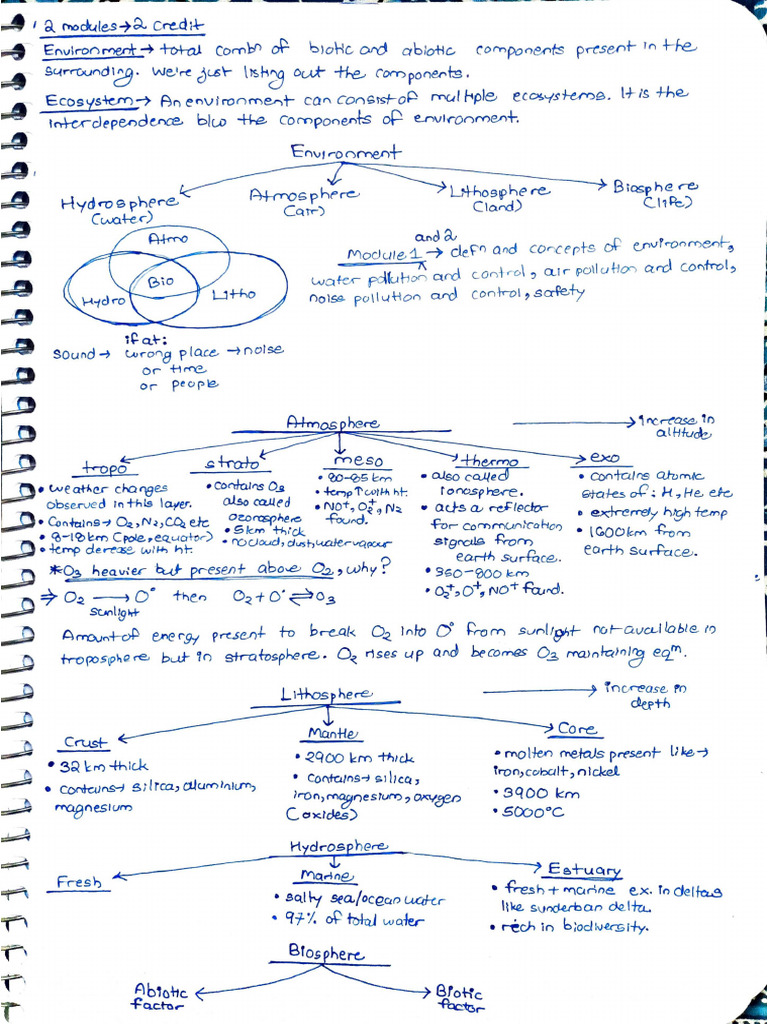 2 modules→2 credit
Environment→ total combⁿ of biotic and abiotic components present in the
surrounding. We're just listing out the components.
Ecosystem→ An environment can consist of multiple ecosystems. It is the
interdependence b/w the components of environment.
Environment
Hydrosphere (water)
Atmosphere (air)
Lithosphere (land)
Biosphere (life)
Atmo
Bio
Hydro
Litho
and 2
Module 1 → defⁿ and concepts of environment,
water pollution and control, air pollution and control,
noise pollution and control, safety
if at:
sound→ wrong place →noise
or time
or people
Atmosphere
→ increase in
altitude
tropo
• weather changes
observed in this layer.
• Contains→ O₂, N₂, CO₂ etc
• 8-18km (pole, equator)
• temp derease with ht.
strato
• contains O₃
also called
ozonosphere
• 5km thick
• no cloud, dust, water vapour
meso
• 80-85 km
• temp↑ with ht.
• NO⁺, O₂⁺, N₂
found.
thermo
• also called
ionosphere.
• acts a reflector
for communication
signals from
earth surface.
• 350-800 km
• O₂⁺, O⁺, NO⁺ found.
exo
• contains atomic
states of: H, He etc
• extremely high temp
• 1600km from
earth surface.
* O₃ heavier but present above O₂, why?
⇒ O₂ → O° then O₂+O° ⇌ O₃
sunlight
Amount of energy present to break O₂ into O° from sunlight not available in
troposphere but in stratosphere. O₂ rises up and becomes O₃ maintaining eqᵐ.
Lithosphere
→ increase in
depth
Crust
• 32 km thick
• contains→ silica, aluminium,
magnesium
Mantle
• 2900 km thick
• contains→ silica,
iron, magnesium, oxygen
(oxides)
Core
• molten metals present like→
iron, cobalt, nickel
• 3900 km
• 5000°C
Hydrosphere
Fresh
Marine
• salty sea/ocean water
• 97% of total water
Estuary
• fresh + marine ex. in deltas
like sunderban delta.
• rich in biodiversity.
Biosphere
Abiotic
factor
Biotic
factor